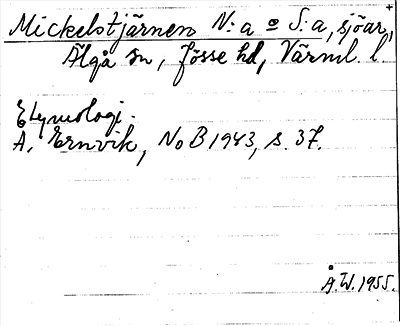 Mickelstjärnen N:a o S:a, sjöar,
Älgå sn, Jösse hd, Värml. l.
Etymologi.
A. Ernvik, NoB 1943, s. 37.
Å.W. 1955.